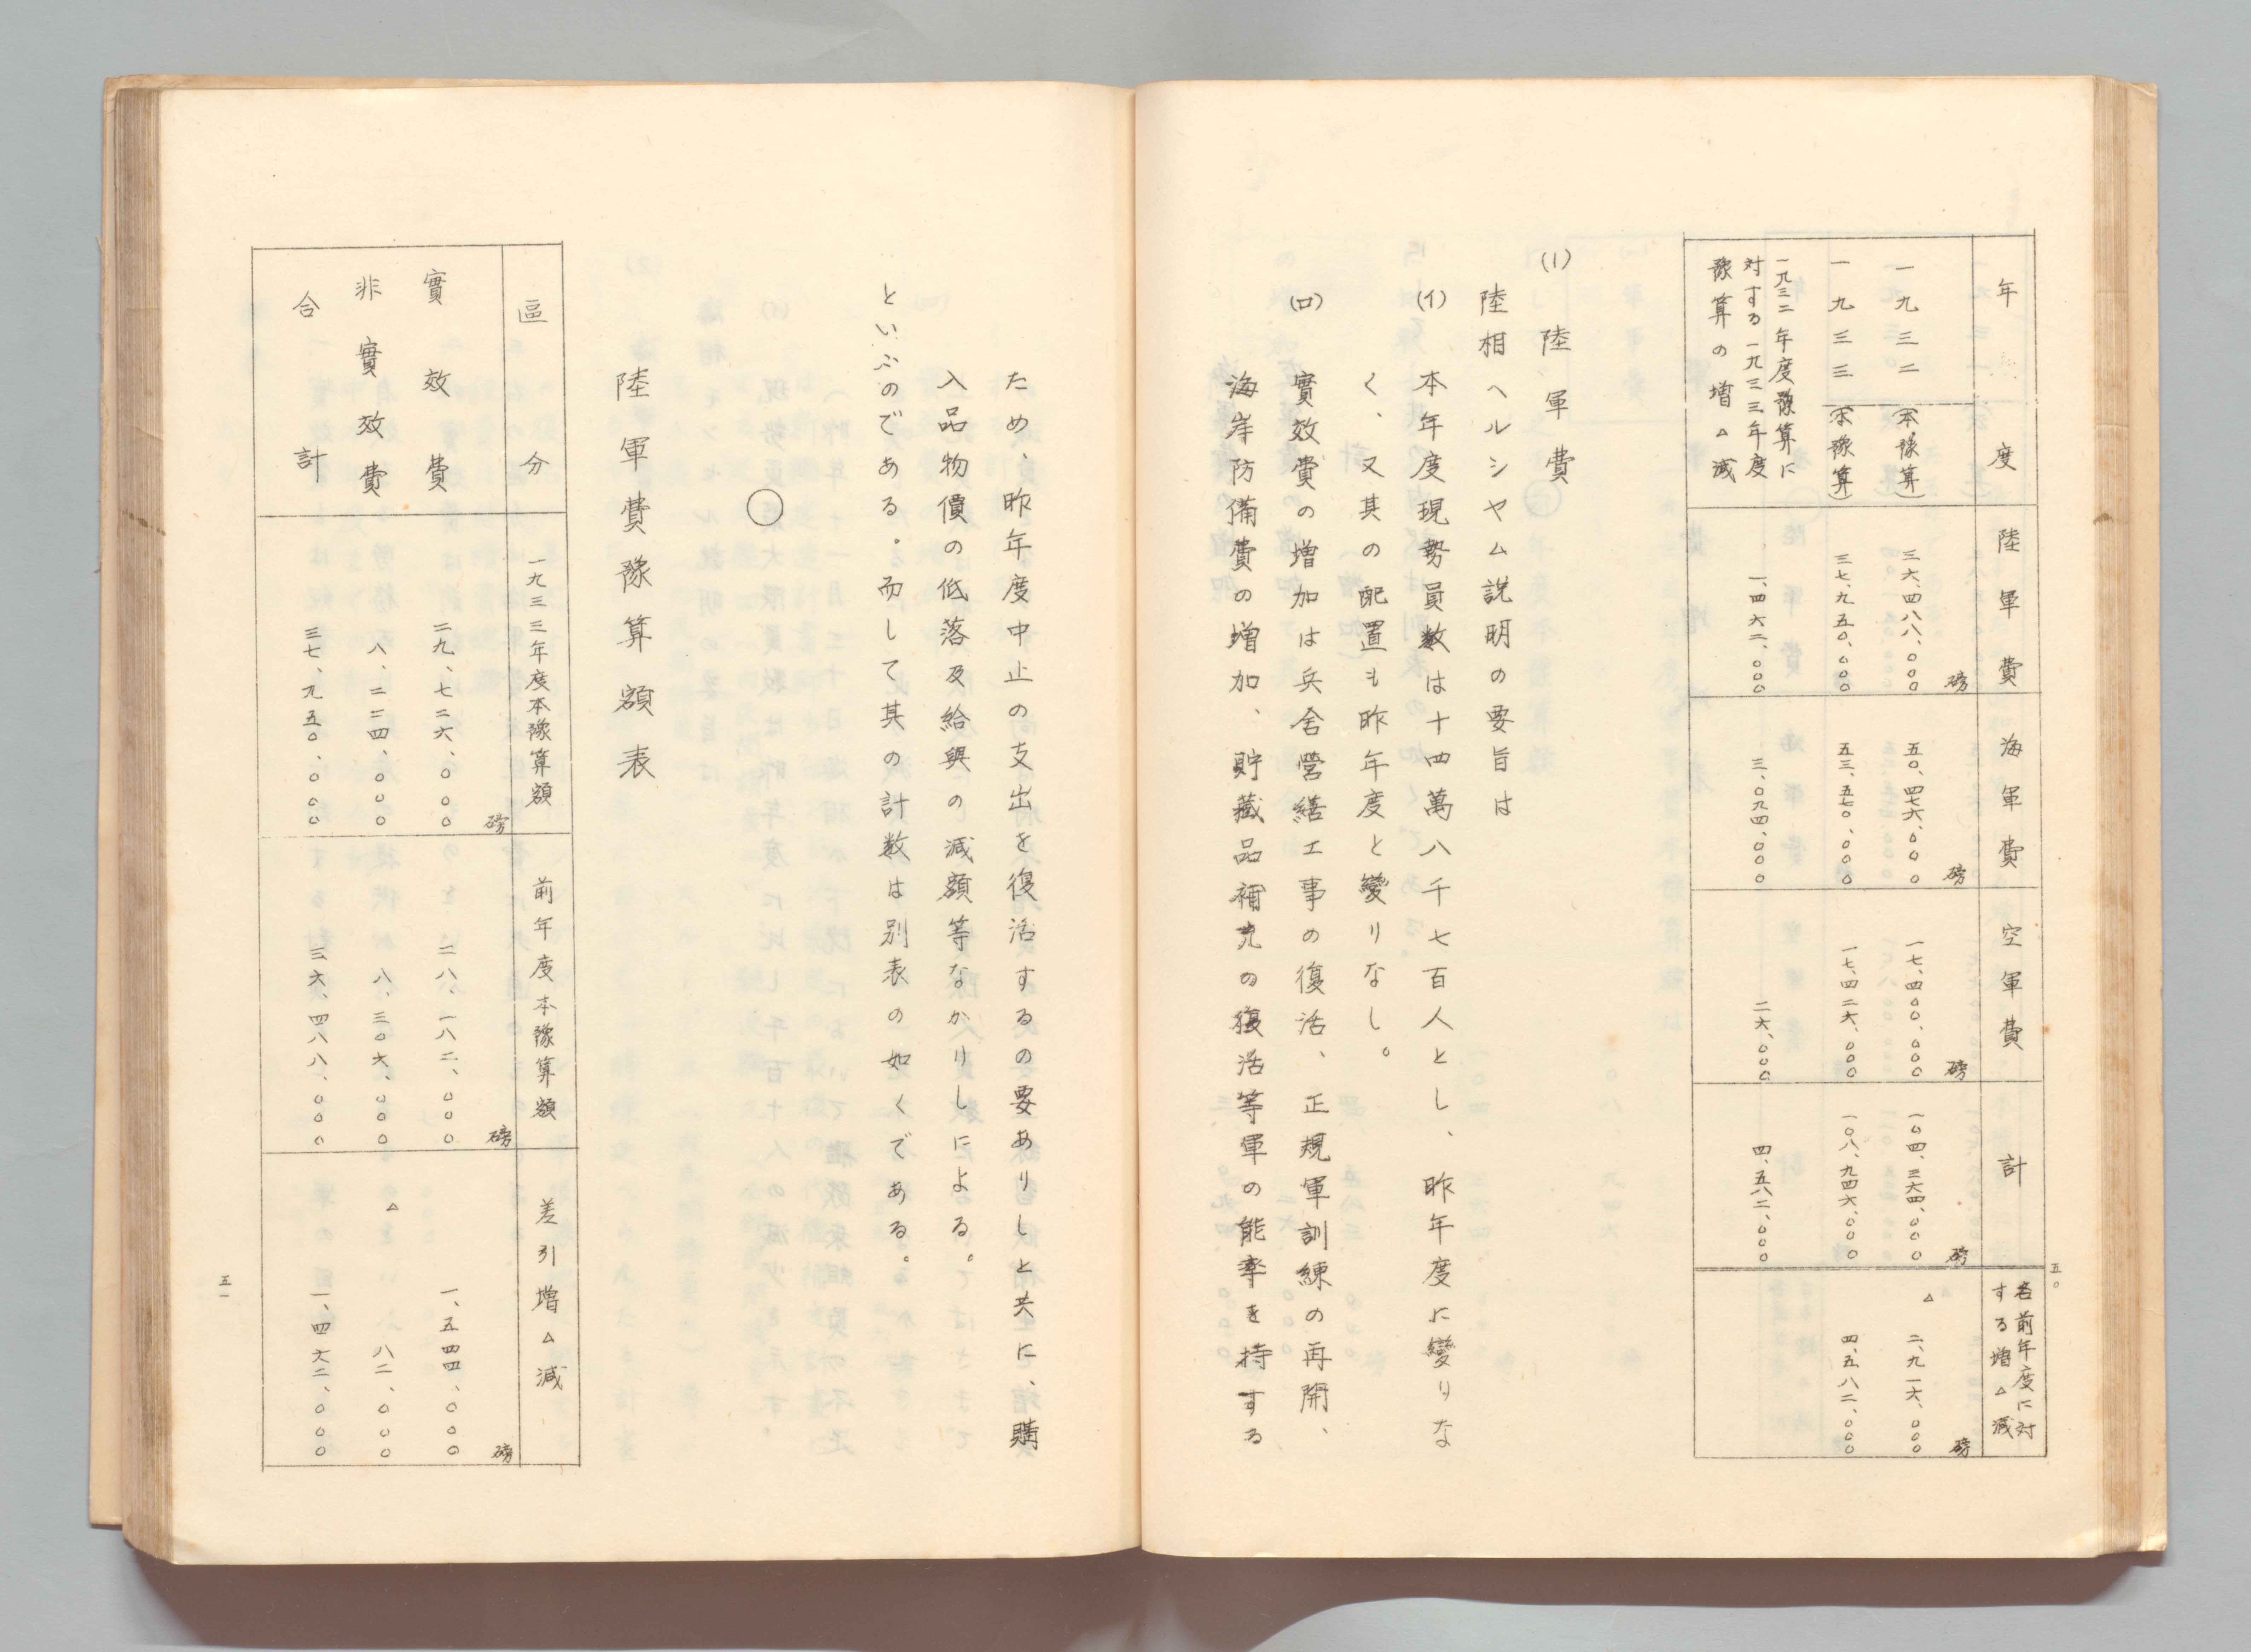 五〇
年度
陸軍費
海軍費
空軍費
計
各前年度に対
する増△減
磅
磅
磅
磅
磅
一九三二(本豫算)
三六、四八八、〇〇〇
五〇、四七六、〇〇〇
一七、四〇〇、〇〇〇
一〇四、三六四、〇〇〇
△二、九一六、〇〇〇
一九三三(本豫算)
三七、九五〇、〇〇〇
五三、五七〇、〇〇〇
一七、四二六、〇〇〇
一〇八、九四六、〇〇〇
四、五八二、〇〇〇
一九三二年度豫算に
対する一九三三年度
豫算の増△減
一、四六二、〇〇〇
三、〇九四、〇〇〇
二六、〇〇〇
四、五八二、〇〇〇
(1) 陸軍費
陸相ヘルシヤム説明の要旨は
(イ) 本年度現勢員数は十四萬八千七百人とし、昨年度に變りな
く、又其の配置も昨年度と變りなし。
(ロ) 實效費の増加は兵舎營繕工事の復活、正規軍訓練の再開、
海岸防備費の増加、貯藏品補充の復活等軍の能率を持する
ため、昨年度中止の支出を復活するの要ありしと共に、購
入品物價の低落及給與の減額等なかりしによる。
といふのである。而して其の計数は別表の如くである。
〇
陸軍費豫算額表
區分
一九三三年度本豫算額
前年度本豫算額
差引増△減
磅
磅
磅
實效費
二九、七二六、〇〇〇
二八、一八二、〇〇〇
一、五四四、〇〇〇
非實效費
八、二二四、〇〇〇
八、三〇六、〇〇〇
△八二、〇〇〇
合計
三七、九五〇、〇〇〇
三六、四八八、〇〇〇
一、四六二、〇〇〇
五一